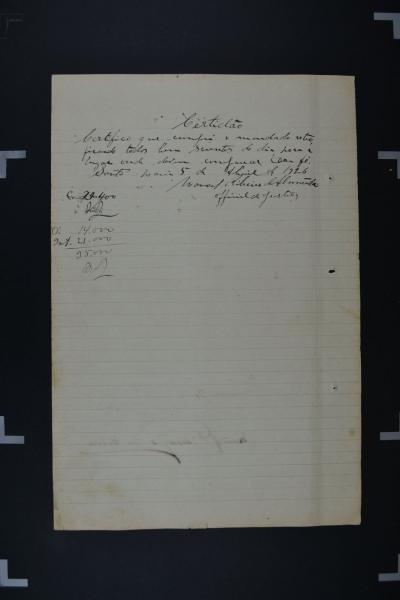 Certidão
Certifico que cumpri o mandado retro,
ficando todos bem scientes do dia hora e
lugar onde deviam comparecer dou fé.
Santa Maria 5 de Abril de 1926
Ribeiro de Almeida
Official de Justiça
14.000
21.000
35.000